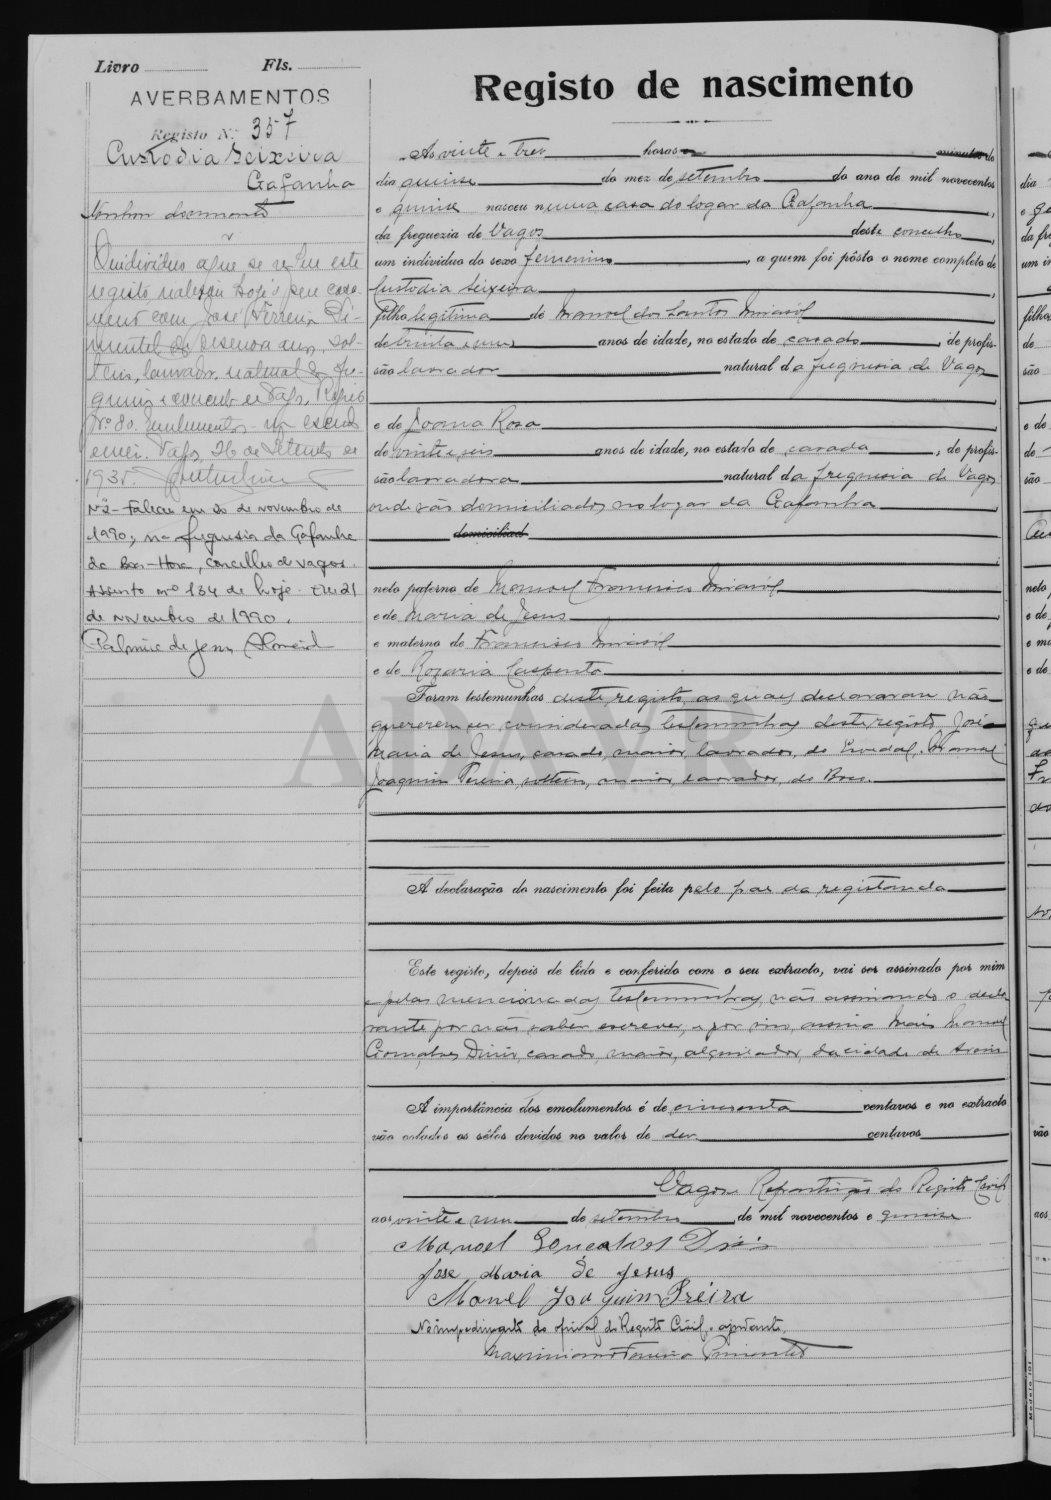 Livro Fls.
AVERBAMENTOS
Registo N.º 357
Custodia Seixeira
Gafanha
Nenhum documento
O individuo a que se refere este
registo, realizou hoje o seu casa-
mento com José Ferreira Pi-
mentel de desenove anos, sol-
teiro, lavrador, natural da fre-
guesia e concelho de Vagos. Registo
Nº 80. Emolumentos um escudo
Vagos, 26 de Setembro de
1935.
Nº 2 - Faleceu em 20 de novembro de
1990, na freguesia da Gafanha
da Boa-Hora, concelho de Vagos.
Assento nº 134 de hoje. Em 21
de novembro de 1990.
Palmira de Jesus Almeida
Registo de nascimento
Ás vinte e tres horas minutos do
dia quinze do mez de setembro do ano de mil novecentos
e quinze nasceu numa casa do logar da Gafanha
da freguezia de Vagos deste concelho
um individuo do sexo femenino, a quem foi pôsto o nome completo de
Custodia Seixeira
filha legitima de Manuel dos Santos Mirasil
de trinta e um anos de idade, no estado de casado, de profis-
são lavrador natural da freguesia de Vagos
e de Joana Rosa
de vinte e seis anos de idade, no estado de casada, de profis-
são lavradora natural da freguesia de Vagos
onde são domiciliados no logar da Gafanha
domiciliad
neto paterno de Manuel Francisco Mirasil
e de Maria de Jesus
e materno de Francisco Mirasil
e de Rosaria
Foram testemunhas deste registo, as quaes declararam não
quererem ser consideradas testemunhas deste registo, José
Maria de Jesus, casado, maior, lavrador, de Manuel
Joaquim Freiria, solteiro, maior, lavrador, de
A declaração do nascimento foi feita pelo pae da registanda
Este registo, depois de lido e conferido com o seu extracto, vai ser assinado por mim
e pelas mencionadas testemunhas, não assinando o decla-
rante por não saber escrever, e por sim, assina mais Manuel
Gonçalves Diniz, casado, maior, alquilador, da cidade de Aveiro
A importância dos emolumentos é de cincoenta centavos e no extracto
vão colados os sêlos devidos no valor de dez centavos
Vagos Repartição do Registo Civil
aos vinte e um de setembro de mil novecentos e quinze
Manoel Gonçalves Dinis
José Maria de Jesus
Manel Joaquim Freira
No impedimento do oficial do Registo Civil, o ajudante
Maximiano Ferreira Pimentel
Modelo 101